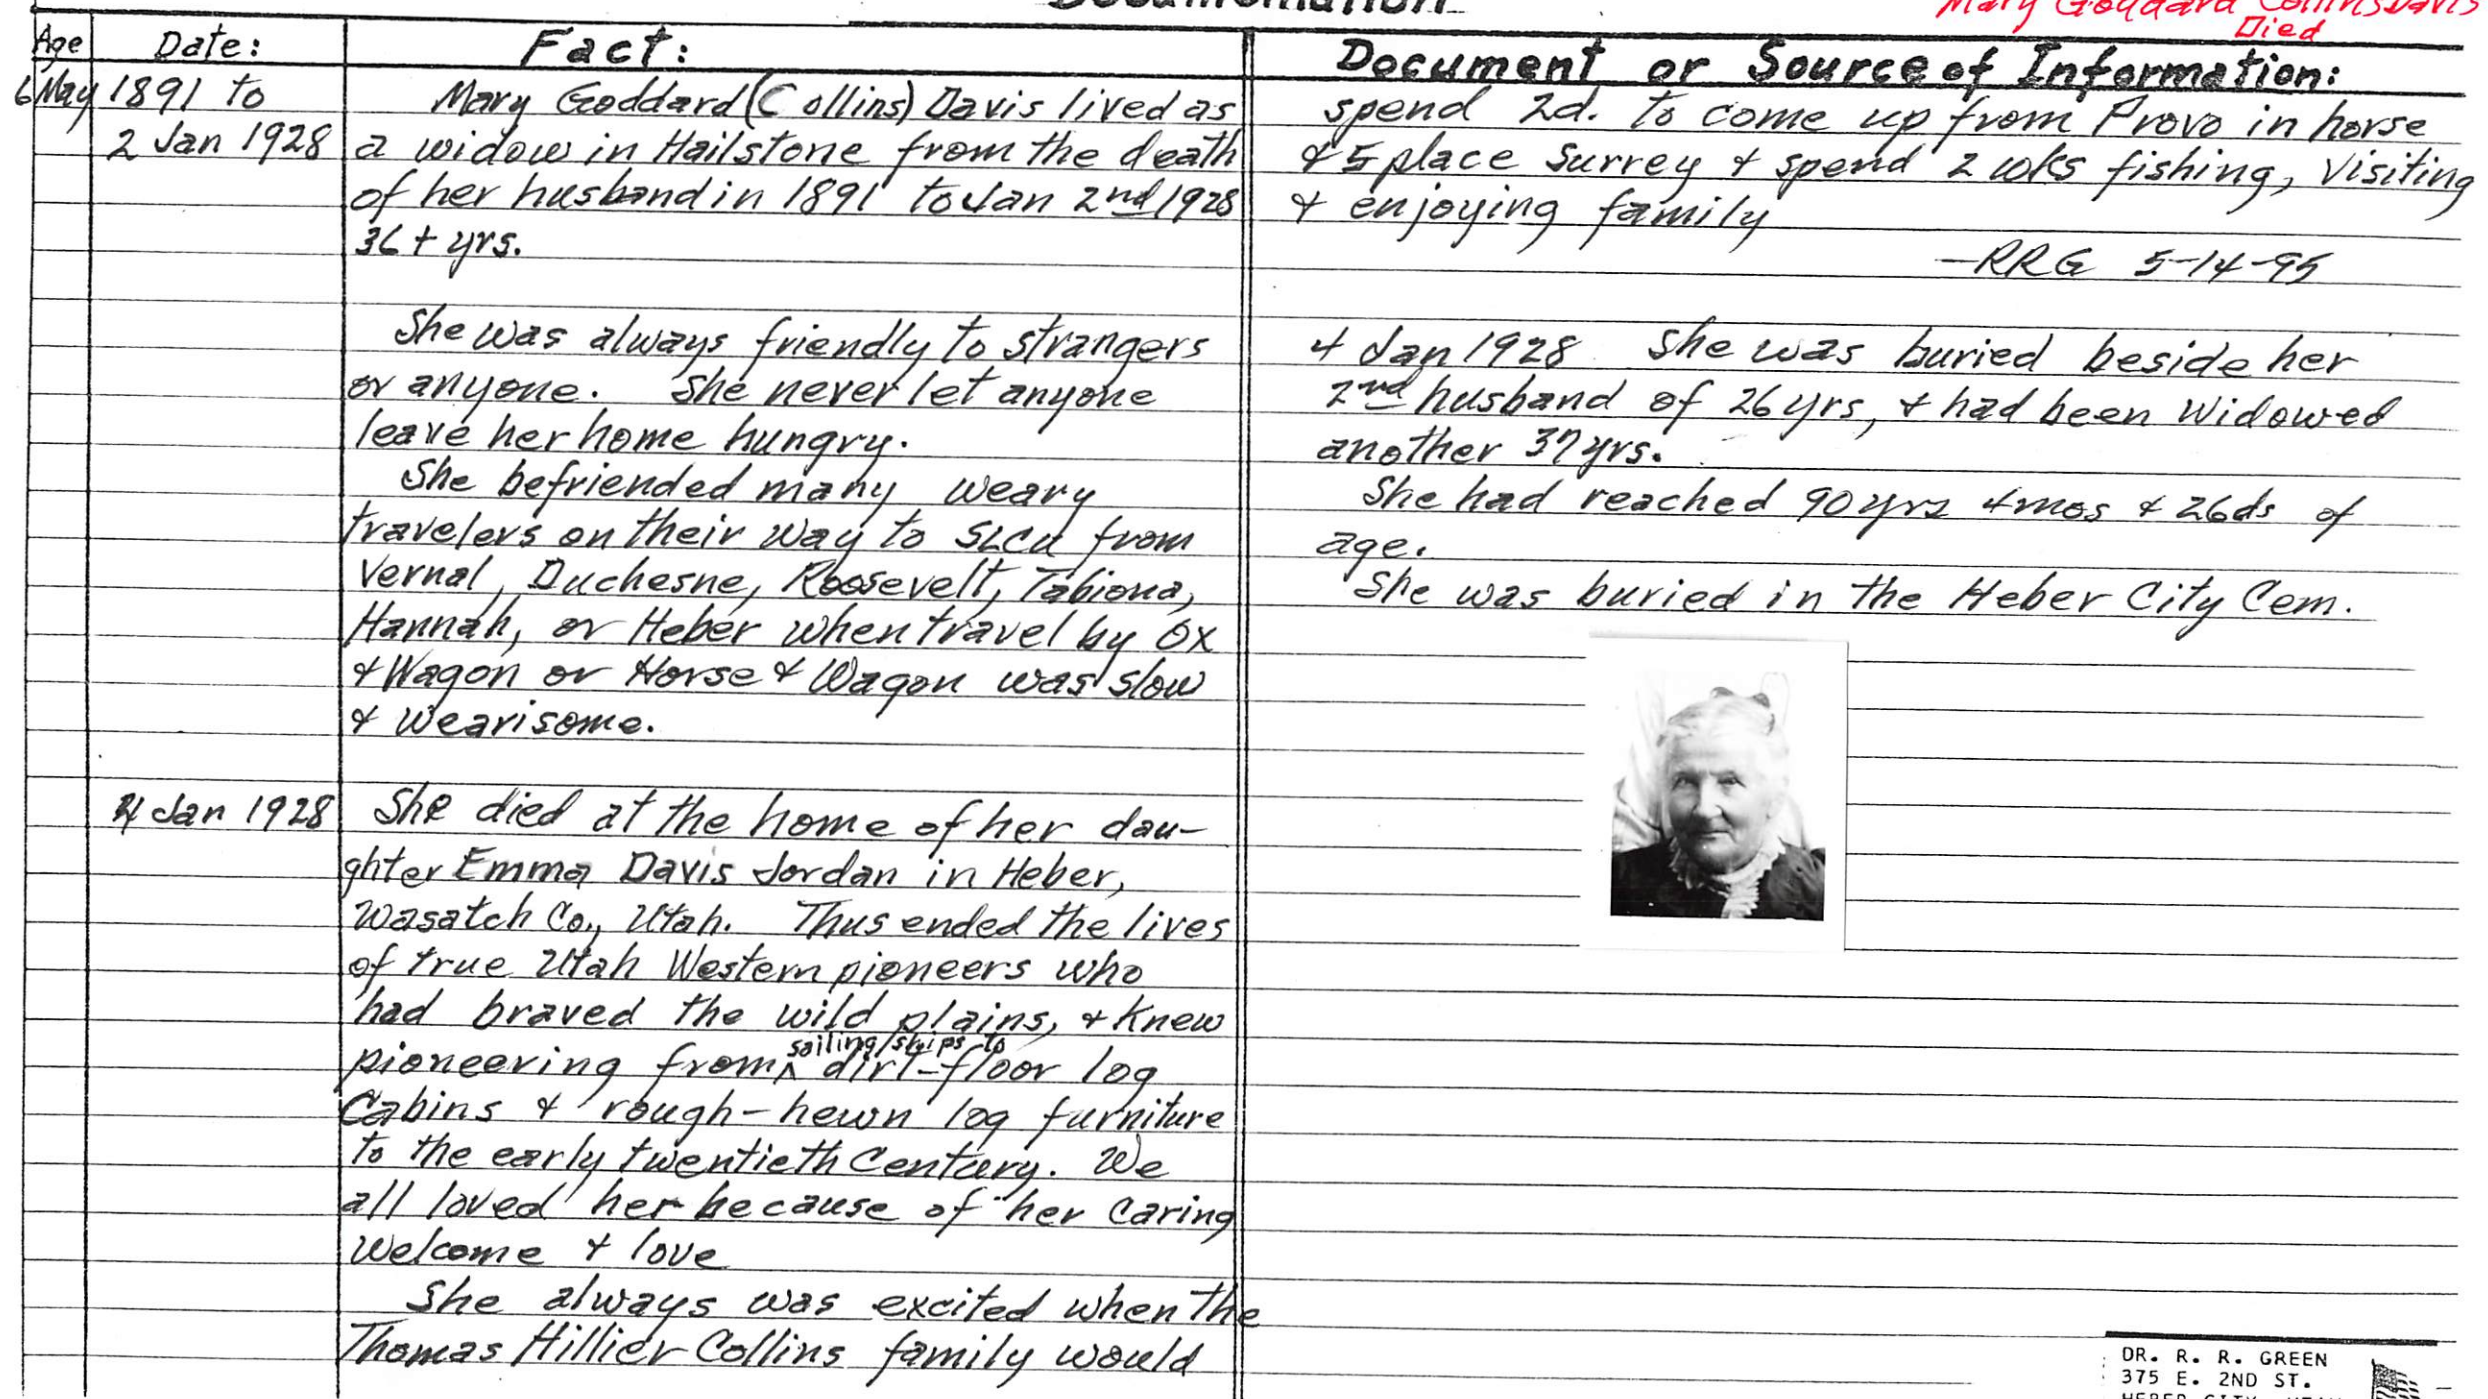 Documentation
Mary Goddard Collins Davis
Died
Age
Date:
Fact:
Document or Source of Information:
6 May 1891 to
2 Jan 1928
Mary Goddard (Collins) Davis lived as
a widow in Hailstone from the death
of her husband in 1891 to Jan 2nd 1928
36 + yrs.
She was always friendly to strangers
or anyone. She never let anyone
leave her home hungry.
She befriended many weary
travelers on their way to SLCU from
Vernal, Duchesne, Roosevelt, Tabiona,
Hannah, or Heber when travel by Ox
& Wagon or Horse & Wagon was slow
& wearisome.
Jan 1928
She died at the home of her dau-
ghter Emma Davis Jordan in Heber,
Wasatch Co., Utah. Thus ended the lives
of true Utah Western pioneers who
had braved the wild plains, & knew
sailing/ships to
pioneering from ^ dirt-floor log
Cabins & rough-hewn log furniture
to the early twentieth Century. We
all loved her because of her caring
welcome & love
She always was excited when the
Thomas Hillier Collins family would
spend 2d. to come up from Provo in horse
& 5 place Surrey & spend 2 wks fishing, visiting
& enjoying family
—RRG 5-14-95
4 Jan 1928 She was buried beside her
2nd husband of 26 yrs, & had been widowed
another 37 yrs.
She had reached 90 yrs 4 mos & 26 ds of
age.
She was buried in the Heber City Cem.
DR. R. R. GREEN
375 E. 2ND ST.
HEBER CITY, UTAH